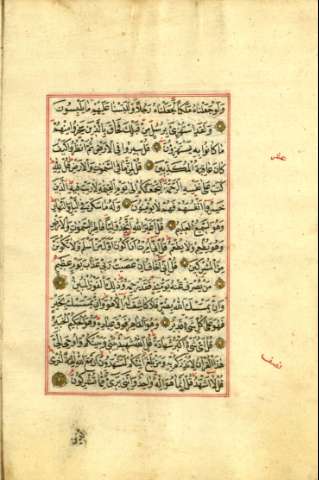 وَلَوْ جَعَلْنَاهُ مَلَكًا لَجَعَلْنَاهُ رَجُلًا وَلَلَبَسْنَا عَلَيْهِمْ مَا يَلْبِسُونَ
وَلَقَدِ اسْتُهْزِئَ بِرُسُلٍ مِنْ قَبْلِكَ فَحَاقَ بِالَّذِينَ سَخِرُوا مِنْهُمْ
مَا كَانُوا بِهِ يَسْتَهْزِؤُنَ قُلْ سِيرُوا فِي الْأَرْضِ ثُمَّ انْظُرُوا كَيْفَ
كَانَ عَاقِبَةُ الْمُكَذِّبِينَ قُلْ لِمَنْ مَا فِي السَّمَوَاتِ وَالْأَرْضِ قُلْ لِلَّهِ
كَتَبَ عَلَى نَفْسِهِ الرَّحْمَةَ لَيَجْمَعَنَّكُمْ إِلَى يَوْمِ الْقِيمَةِ لَا رَيْبَ فِيهِ الَّذِينَ
خَسِرُوا أَنْفُسَهُمْ فَهُمْ لَا يُؤْمِنُونَ وَلَهُ مَا سَكَنَ فِي اللَّيْلِ وَالنَّهَارِ
وَهُوَ السَّمِيعُ الْعَلِيمُ قُلْ أَغَيْرَ اللَّهِ أَتَّخِذُ وَلِيًّا فَاطِرِ السَّمَوَاتِ وَالْأَرْضِ
وَهُوَ يُطْعِمُ وَلَا يُطْعَمُ قُلْ إِنِّي أُمِرْتُ أَنْ أَكُونَ أَوَّلَ مَنْ أَسْلَمَ وَلَا تَكُونَنَّ
مِنَ الْمُشْرِكِينَ قُلْ إِنِّي أَخَافُ إِنْ عَصَيْتُ رَبِّي عَذَابَ يَوْمٍ عَظِيمٍ
مَنْ يُصْرَفْ عَنْهُ يَوْمَئِذٍ فَقَدْ رَحِمَهُ وَذَلِكَ الْفَوْزُ الْمُبِينُ
وَإِنْ يَمْسَسْكَ اللَّهُ بِضُرٍّ فَلَا كَاشِفَ لَهُ إِلَّا هُوَ وَإِنْ يَمْسَسْكَ بِخَيْرٍ
فَهُوَ عَلَى كُلِّ شَيْءٍ قَدِيرٌ وَهُوَ الْقَاهِرُ فَوْقَ عِبَادِهِ وَهُوَ الْحَكِيمُ الْخَبِيرُ
قُلْ أَيُّ شَيْءٍ أَكْبَرُ شَهَادَةً قُلِ اللَّهُ شَهِيدٌ بَيْنِي وَبَيْنَكُمْ وَأُوحِيَ إِلَيَّ
هَذَا الْقُرْآنُ لِأُنْذِرَكُمْ بِهِ وَمَنْ بَلَغَ أَئِنَّكُمْ لَتَشْهَدُونَ أَنَّ مَعَ اللَّهِ آلِهَةً أُخْرَى
قُلْ لَا أَشْهَدُ قُلْ إِنَّمَا هُوَ إِلَهٌ وَاحِدٌ وَإِنَّنِي بَرِيءٌ مِمَّا تُشْرِكُونَ
عشر
نصف
الذين